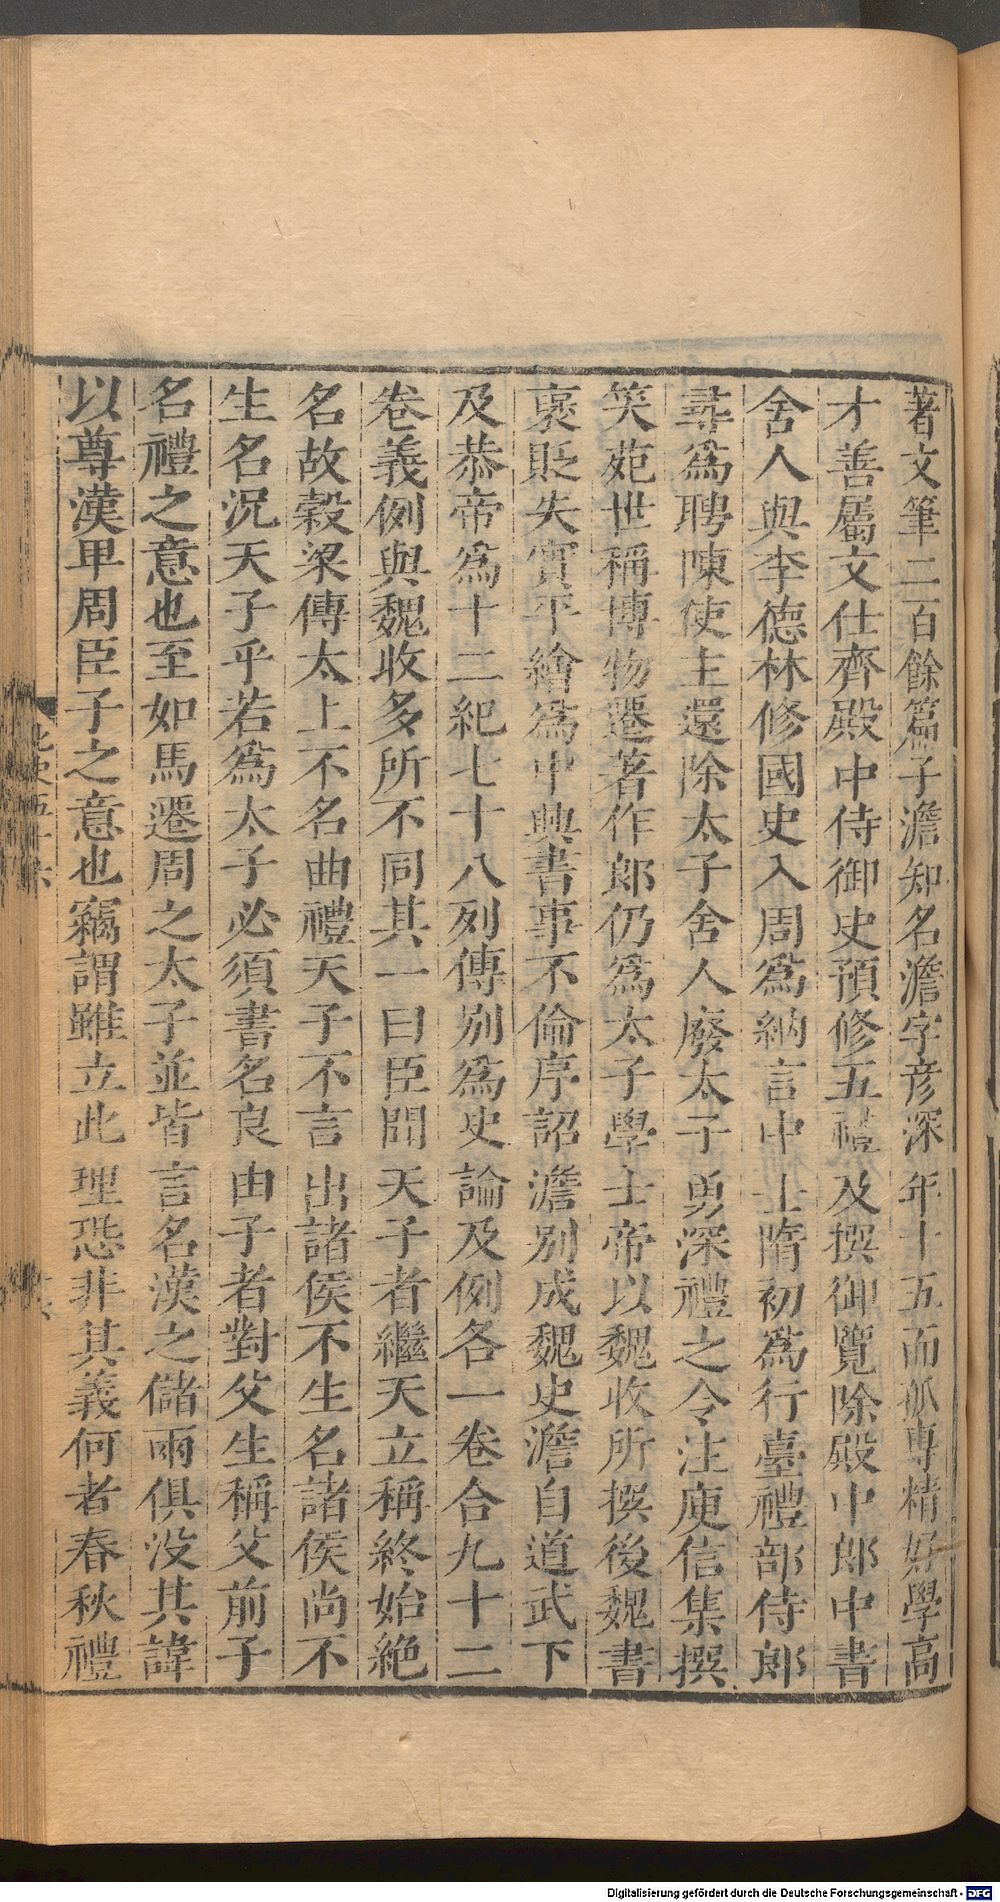 著文筆二百餘篇子澹知名澹字彦深年十五而孤專精好學高
才善屬文仕齊殿中侍御史預修五禮及撰御覽除殿中郎中書
舍人與李德林修國史入周為納言中士隋初為行臺禮部侍郎
尋為聘陳使主還除太子舍人廢太子勇深禮之令注庾信集撰
笑苑世稱博物遷著作郎仍為太子學士帝以魏收所撰後魏書
褒貶失實平繪為中興書事不倫序詔澹別成魏史澹自道武下
及恭帝為十二紀七十八列傳別為史論及例各一卷合九十二
卷義例與魏收多所不同其一曰臣聞天子者繼天立稱終始絶
名故穀梁傳太上不名曲禮天子不言出諸侯不生名諸侯尚不
生名況天子乎若為太子必須書名良由子者對父生稱父前子
名禮之意也至如馬遷周之太子並皆言名漢之儲兩俱没其諱
以尊漢卑周臣子之意也竊謂雖立此理恐非其義何者春秋禮
北史五十六
Digitalisierung gefördert durch die Deutsche Forschungsgemeinschaft - DFG